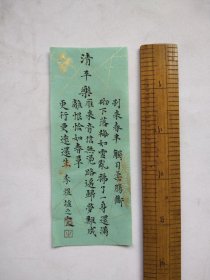 清平樂
別來春半 觸目柔腸斷
砌下落梅如雪亂 拂了一身還滿
雁來音信無憑 路遙歸夢難成
離恨恰如春草
更行更遠還生 李煜